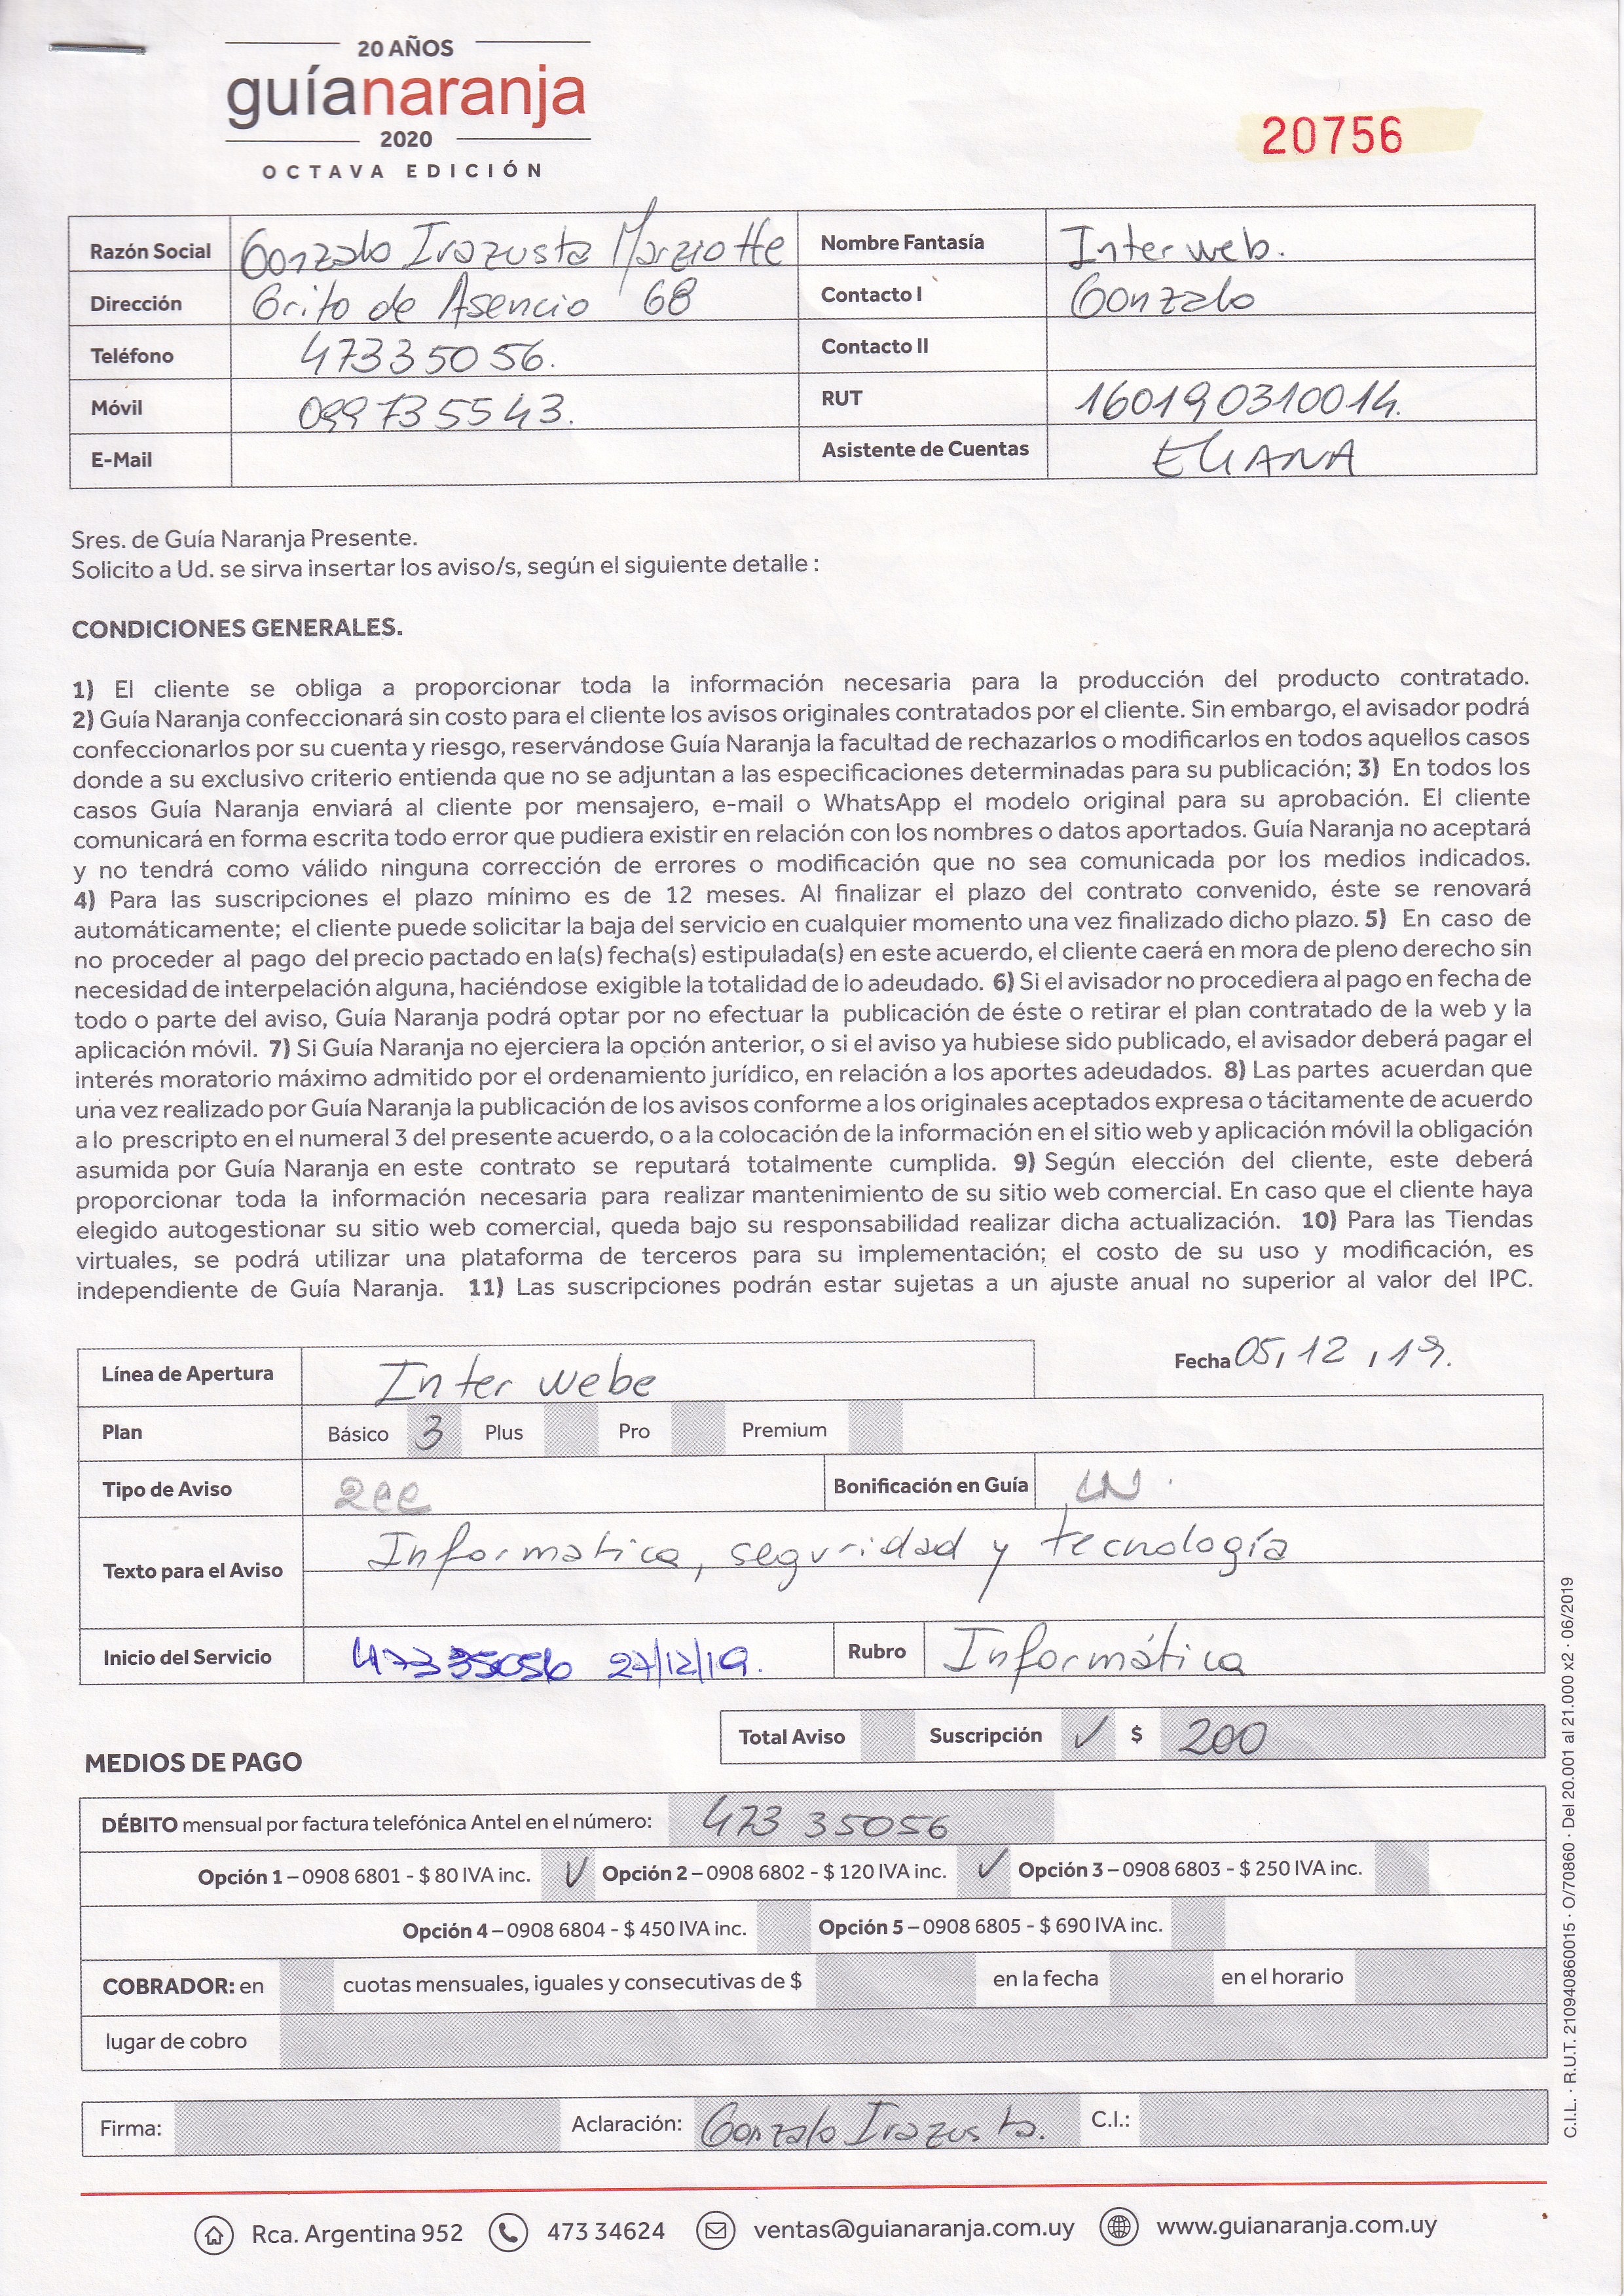 20 AÑOS
guíanaranja
2020
OCTAVA EDICIÓN
20756
Razón Social Gonzalo Irazusta Nombre Fantasía Inter web.
Dirección Grito de Asencio 68 Contacto I Gonzalo
Teléfono 47335056. Contacto II
Móvil 099735543. RUT 160190310014.
E-Mail Asistente de Cuentas ELIANA
Sres. de Guía Naranja Presente.
Solicito a Ud. se sirva insertar los aviso/s, según el siguiente detalle :
CONDICIONES GENERALES.
1) El cliente se obliga a proporcionar toda la información necesaria para la producción del producto contratado.
2) Guía Naranja confeccionará sin costo para el cliente los avisos originales contratados por el cliente. Sin embargo, el avisador podrá
confeccionarlos por su cuenta y riesgo, reservándose Guía Naranja la facultad de rechazarlos o modificarlos en todos aquellos casos
donde a su exclusivo criterio entienda que no se adjuntan a las especificaciones determinadas para su publicación; 3) En todos los
casos Guía Naranja enviará al cliente por mensajero, e-mail o WhatsApp el modelo original para su aprobación. El cliente
comunicará en forma escrita todo error que pudiera existir en relación con los nombres o datos aportados. Guía Naranja no aceptará
y no tendrá como válido ninguna corrección de errores o modificación que no sea comunicada por los medios indicados.
4) Para las suscripciones el plazo mínimo es de 12 meses. Al finalizar el plazo del contrato convenido, éste se renovará
automáticamente; el cliente puede solicitar la baja del servicio en cualquier momento una vez finalizado dicho plazo. 5) En caso de
no proceder al pago del precio pactado en la(s) fecha(s) estipulada(s) en este acuerdo, el cliente caerá en mora de pleno derecho sin
necesidad de interpelación alguna, haciéndose exigible la totalidad de lo adeudado. 6) Si el avisador no procediera al pago en fecha de
todo o parte del aviso, Guía Naranja podrá optar por no efectuar la publicación de éste o retirar el plan contratado de la web y la
aplicación móvil. 7) Si Guía Naranja no ejerciera la opción anterior, o si el aviso ya hubiese sido publicado, el avisador deberá pagar el
interés moratorio máximo admitido por el ordenamiento jurídico, en relación a los aportes adeudados. 8) Las partes acuerdan que
una vez realizado por Guía Naranja la publicación de los avisos conforme a los originales aceptados expresa o tácitamente de acuerdo
a lo prescripto en el numeral 3 del presente acuerdo, o a la colocación de la información en el sitio web y aplicación móvil la obligación
asumida por Guía Naranja en este contrato se reputará totalmente cumplida. 9) Según elección del cliente, este deberá
proporcionar toda la información necesaria para realizar mantenimiento de su sitio web comercial. En caso que el cliente haya
elegido autogestionar su sitio web comercial, queda bajo su responsabilidad realizar dicha actualización. 10) Para las Tiendas
virtuales, se podrá utilizar una plataforma de terceros para su implementación; el costo de su uso y modificación, es
independiente de Guía Naranja. 11) Las suscripciones podrán estar sujetas a un ajuste anual no superior al valor del IPC.
Línea de Apertura Inter webe Fecha 05, 12, 19.
Plan Básico 3 Plus Pro Premium
Tipo de Aviso Bonificación en Guía
Texto para el Aviso Informatica, seguridad y tecnología
Inicio del Servicio 47335056 27/12/19. Rubro Informática
Total Aviso Suscripción ✓ $ 200
MEDIOS DE PAGO
DÉBITO mensual por factura telefónica Antel en el número: 473 35056
Opción 1 – 0908 6801 - $ 80 IVA inc. ✓ Opción 2 – 0908 6802 - $ 120 IVA inc. ✓ Opción 3 – 0908 6803 - $ 250 IVA inc.
Opción 4 – 0908 6804 - $ 450 IVA inc. Opción 5 – 0908 6805 - $ 690 IVA inc.
COBRADOR: en cuotas mensuales, iguales y consecutivas de $ en la fecha en el horario
lugar de cobro
Firma: Aclaración: Gonzalo Irazusta. C.I.:
Rca. Argentina 952 473 34624 ventas@guianaranja.com.uy www.guianaranja.com.uy
C.I.L. · R.U.T. 210940860015 · O/70860 · Del 20.001 al 21.000 x2 · 06/2019